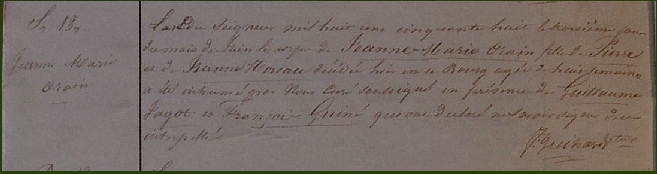 S. 13.
Jeanne Marie
Orain
L'an du Seigneur mil huit cent cinquante huit le troisième jour
du mois de Juin le corps de Jeanne-Marie Orain fille de Pierre
et de Jeanne Moreau décédée hier en ce Bourg agée de huit semaines
a été inhumé par Nous Curé soussigné en présence de Guillaume
Jagot et François Guiné qui ont déclaré ne savoir signer de ce
interpellés.
J. Guihard